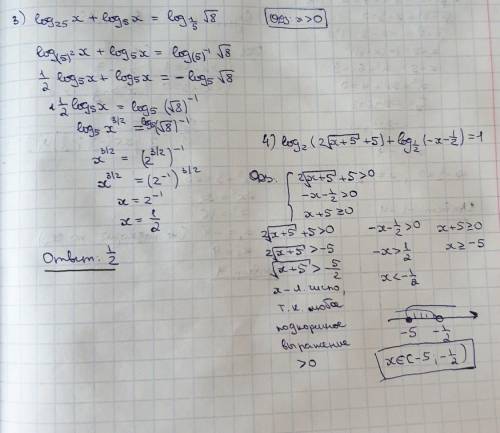 3) log₂₅x + log₅x = log_{1/5}√8    ОДЗ: x>0
log_{(5)²}x + log₅x = log_{(5)⁻¹}√8
1/2 log₅x + log₅x = -log₅√8
1 1/2 log₅x = log₅(√8)⁻¹
log₅x^{3/2} = log₅(√8)⁻¹
x^{3/2} = (2^{3/2})⁻¹
x^{3/2} = (2⁻¹)^{3/2}
x = 2⁻¹
x = 1/2
Ответ: 1/2
4) log₂(2√(x+5)+5) + log_{1/2}(-x-1/2) = 1
ОДЗ: { 2√(x+5)+5>0
-x-1/2>0
x+5≥0
2√(x+5)+5>0    -x-1/2>0    x+5≥0
2√(x+5)>-5    -x>1/2    x≥-5
√(x+5)>-5/2    x<-1/2
x-л. число,
т.к. любое
подкорное
выражение
>0
-5    -1/2
x∈[-5;-1/2)